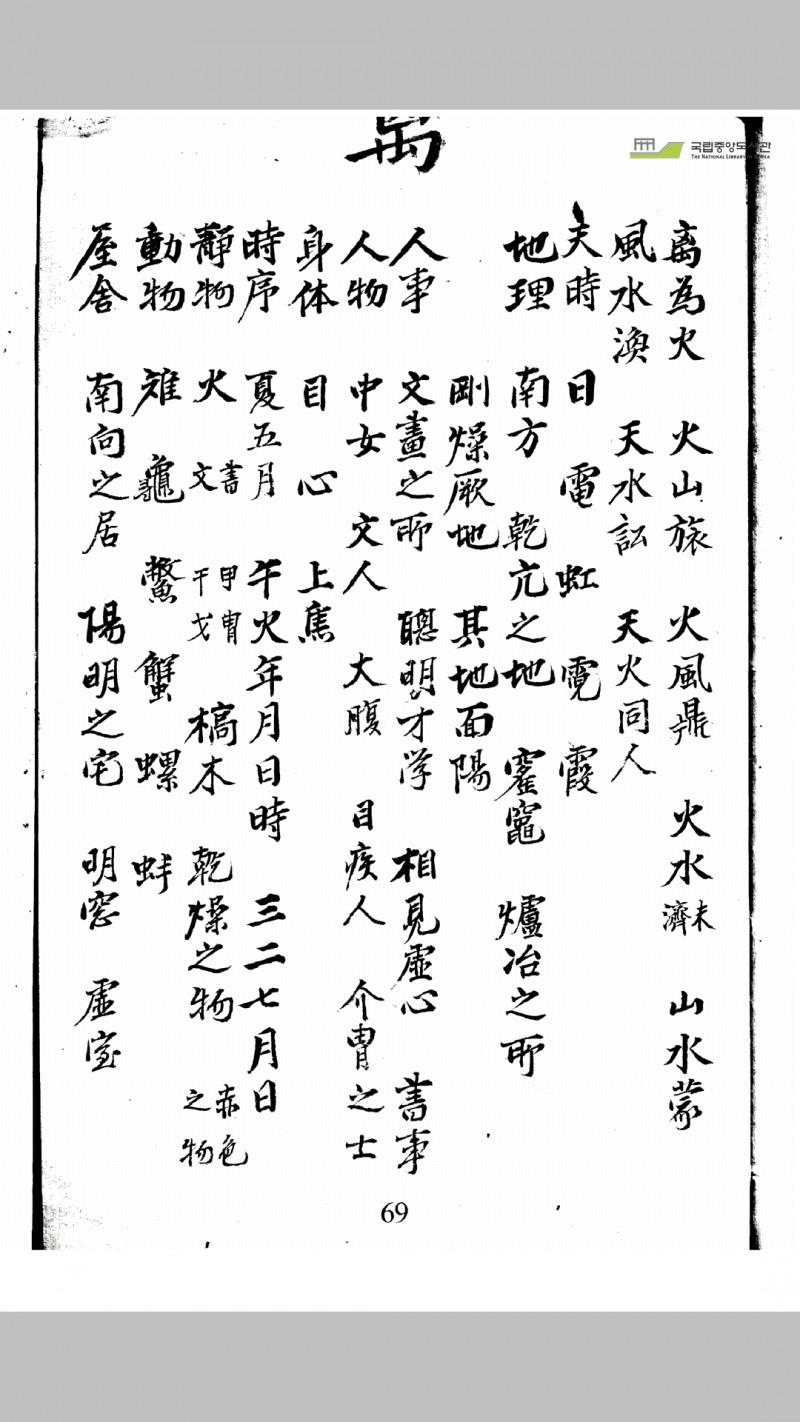 국립중앙도서관
THE NATIONAL LIBRARY OF KOREA
离為火 火山旅 火風鼎 火水未濟 山水蒙
風水渙 天水訟 天火同人
天時 日 電 虹 霓 霞
地理 南方 乾亢之地 窰竈 爐冶之所
剛燥厥地 其地面陽
人事 文畫之所 聰明才学 相見虛心 書事
人物 中女 文人 大腹 目疾人 介冑之士
身体 目 心 上焦
時序 夏五月 午火年月日時 三二七月日
靜物 火 文書 甲冑干戈 槁木 乾燥之物 赤色之物
動物 雉 龜 鱉 蟹 螺 蚌
屋舍 南向之居 陽明之宅 明窓 虛室
69